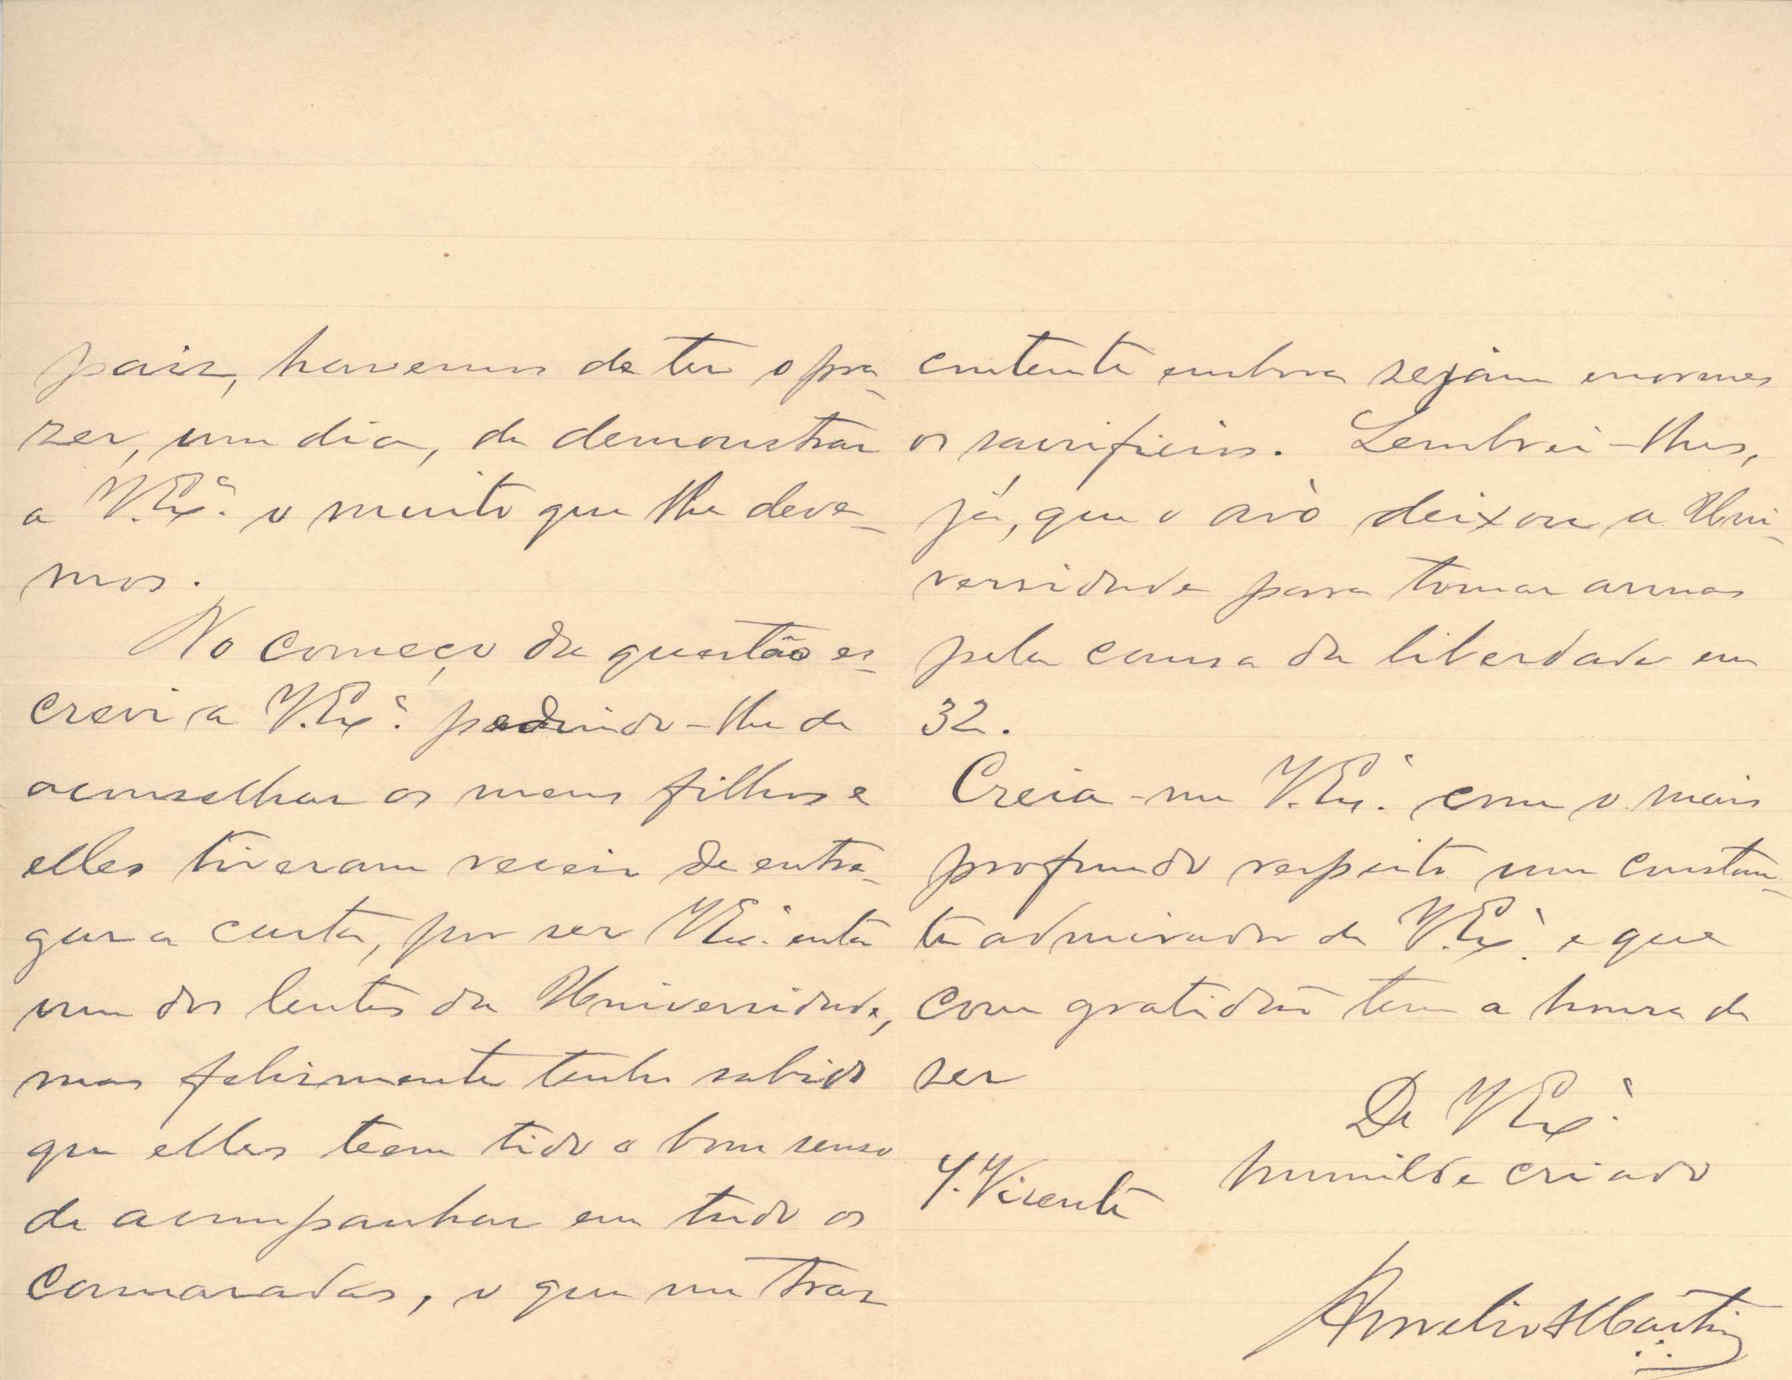 paiz, havemos de ter o pra-
zer, um dia, de demonstrar
a V. Exª. o muito que lhe deve-
mos.
No começo da questão es-
crevi a V. Exª. pedindo-lhe de
aconselhar os meus filhos e
elles tiveram receio de entre-
gar a carta, por ser V Exª. entá
um dos lentes da Universidade,
mas felizmente tenho sabido
que elles teem tido o bom senso
de acompanhar em tudo os
camaradas, o que me traz
contente embora sejam enormes
os sacrificios. Lembrei-lhes,
já, que o avô deixou a Uni-
versidade para tomar armas
pela causa da liberdade em
32.
Creia-me V. Exª. com o mais
profundo respeito um constan-
te admirador de V. Exª. e que
com gratidão tem a honra de
ser
De V Exª.
humilde criado
S. Vicente
Aurelio Martins